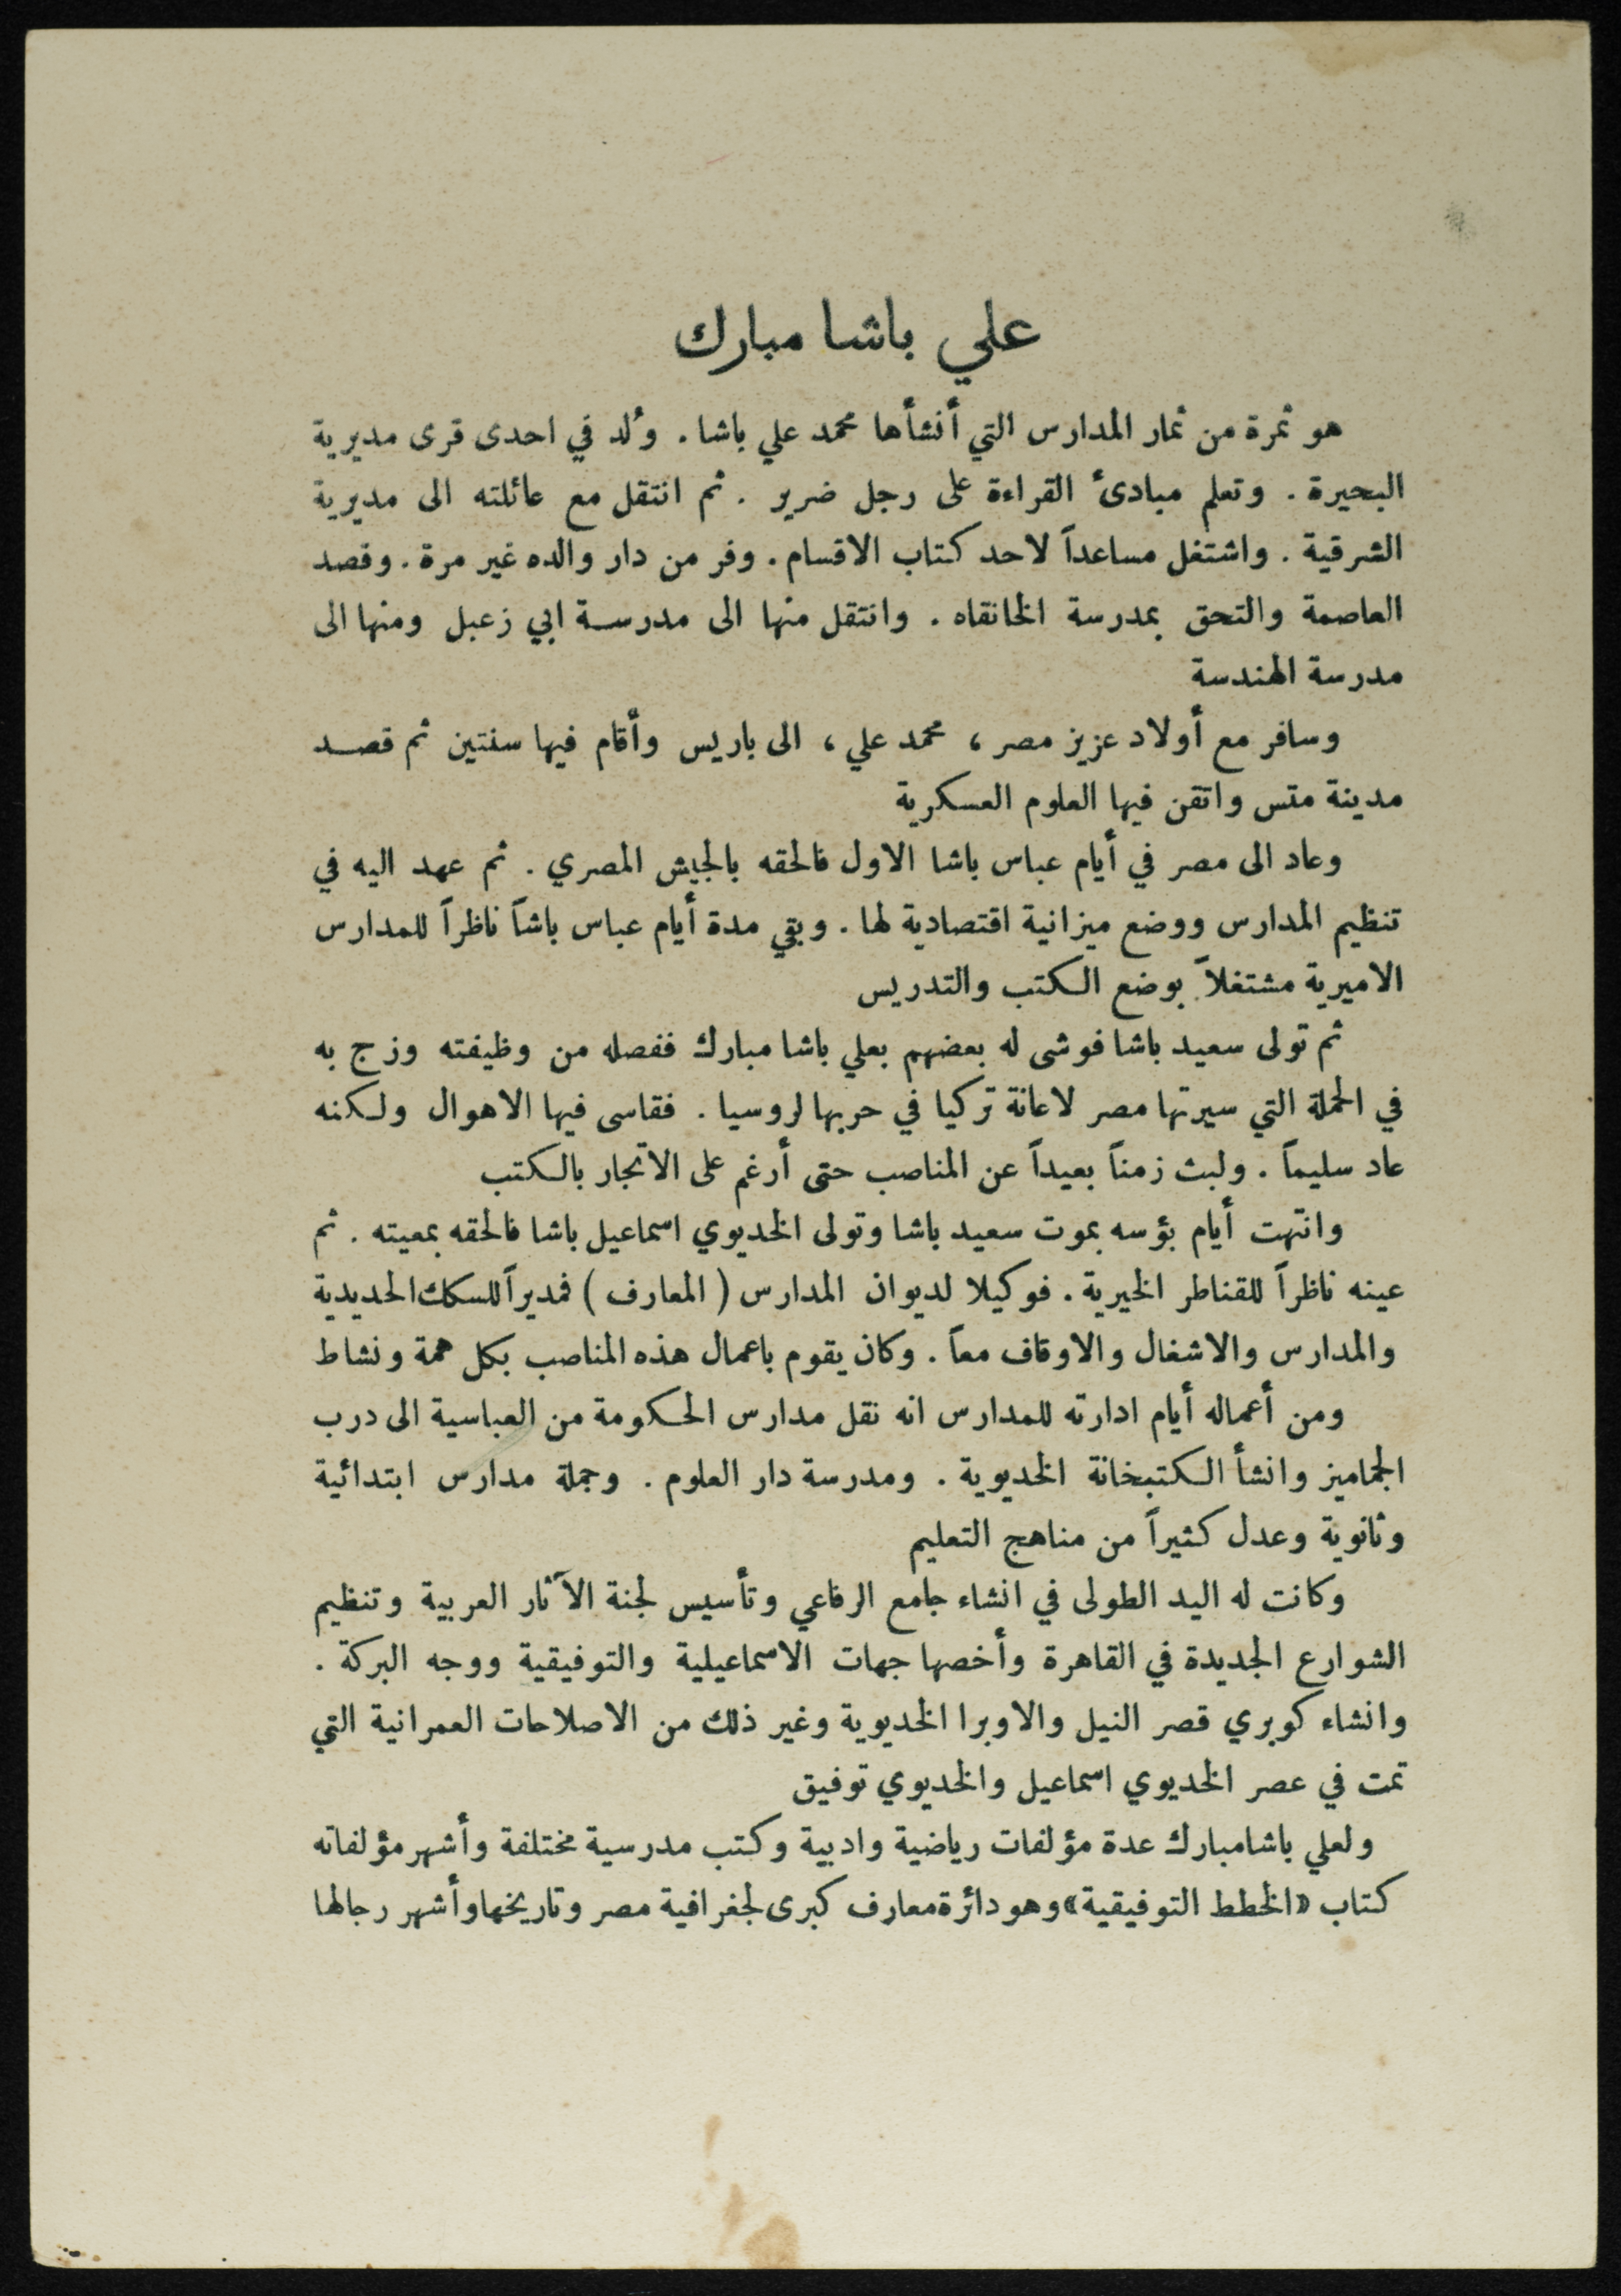 علي باشا مبارك
هو ثمرة من ثمار المدارس التي أنشأها محمد علي باشا . وُلد في احدى قرى مديرية
البحيرة . وتعلم مبادئ القراءة على رجل ضرير . ثم انتقل مع عائلته الى مديرية
الشرقية . واشتغل مساعداً لاحد كتاب الاقسام . وفر من دار والده غير مرة . وقصد
العاصمة والتحق بمدرسة الخانقاه . وانتقل منها الى مدرسة ابي زعبل ومنها الى
مدرسة الهندسة
وسافر مع أولاد عزيز مصر ، محمد علي ، الى باريس وأقام فيها سنتين ثم قصد
مدينة متس واتقن فيها العلوم العسكرية
وعاد الى مصر في أيام عباس باشا الاول فالحقه بالجيش المصري . ثم عهد اليه في
تنظيم المدارس ووضع ميزانية اقتصادية لها . وبقي مدة أيام عباس باشاً ناظراً للمدارس
الاميرية مشتغلاً بوضع الكتب والتدريس
ثم تولى سعيد باشا فوشى له بعضهم بعلي باشا مبارك ففصله من وظيفته وزج به
في الحملة التي سيرتها مصر لاعانة تركيا في حربها لروسيا . فقاسى فيها الاهوال ولكنه
عاد سليماً . ولبث زمناً بعيداً عن المناصب حتى أرغم على الاتجار بالكتب
وانتهت أيام بؤسه بموت سعيد باشا وتولى الخديوي اسماعيل باشا فالحقه بمعيته . ثم
عينه ناظراً للقناطر الخيرية . فوكيلا لديوان المدارس ( المعارف ) فمديراً للسكك الحديدية
والمدارس والاشغال والاوقاف معاً . وكان يقوم باعمال هذه المناصب بكل همة ونشاط
ومن أعماله أيام ادارته للمدارس انه نقل مدارس الحكومة من العباسية الى درب
الجماميز وانشأ الكتبخانة الخديوية . ومدرسة دار العلوم . وجملة مدارس ابتدائية
وثانوية وعدل كثيراً من مناهج التعليم
وكانت له اليد الطولى في انشاء جامع الرفاعي وتأسيس لجنة الآثار العربية وتنظيم
الشوارع الجديدة في القاهرة وأخصها جهات الاسماعيلية والتوفيقية ووجه البركة .
وانشاء كوبري قصر النيل والاوبرا الخديوية وغير ذلك من الاصلاحات العمرانية التي
تمت في عصر الخديوي اسماعيل والخديوي توفيق
ولعلي باشا مبارك عدة مؤلفات رياضية وادبية وكتب مدرسية مختلفة وأشهر مؤلفاته
كتاب «الخطط التوفيقية» وهو دائرة معارف كبرى لجغرافية مصر وتاريخها وأشهر رجالها